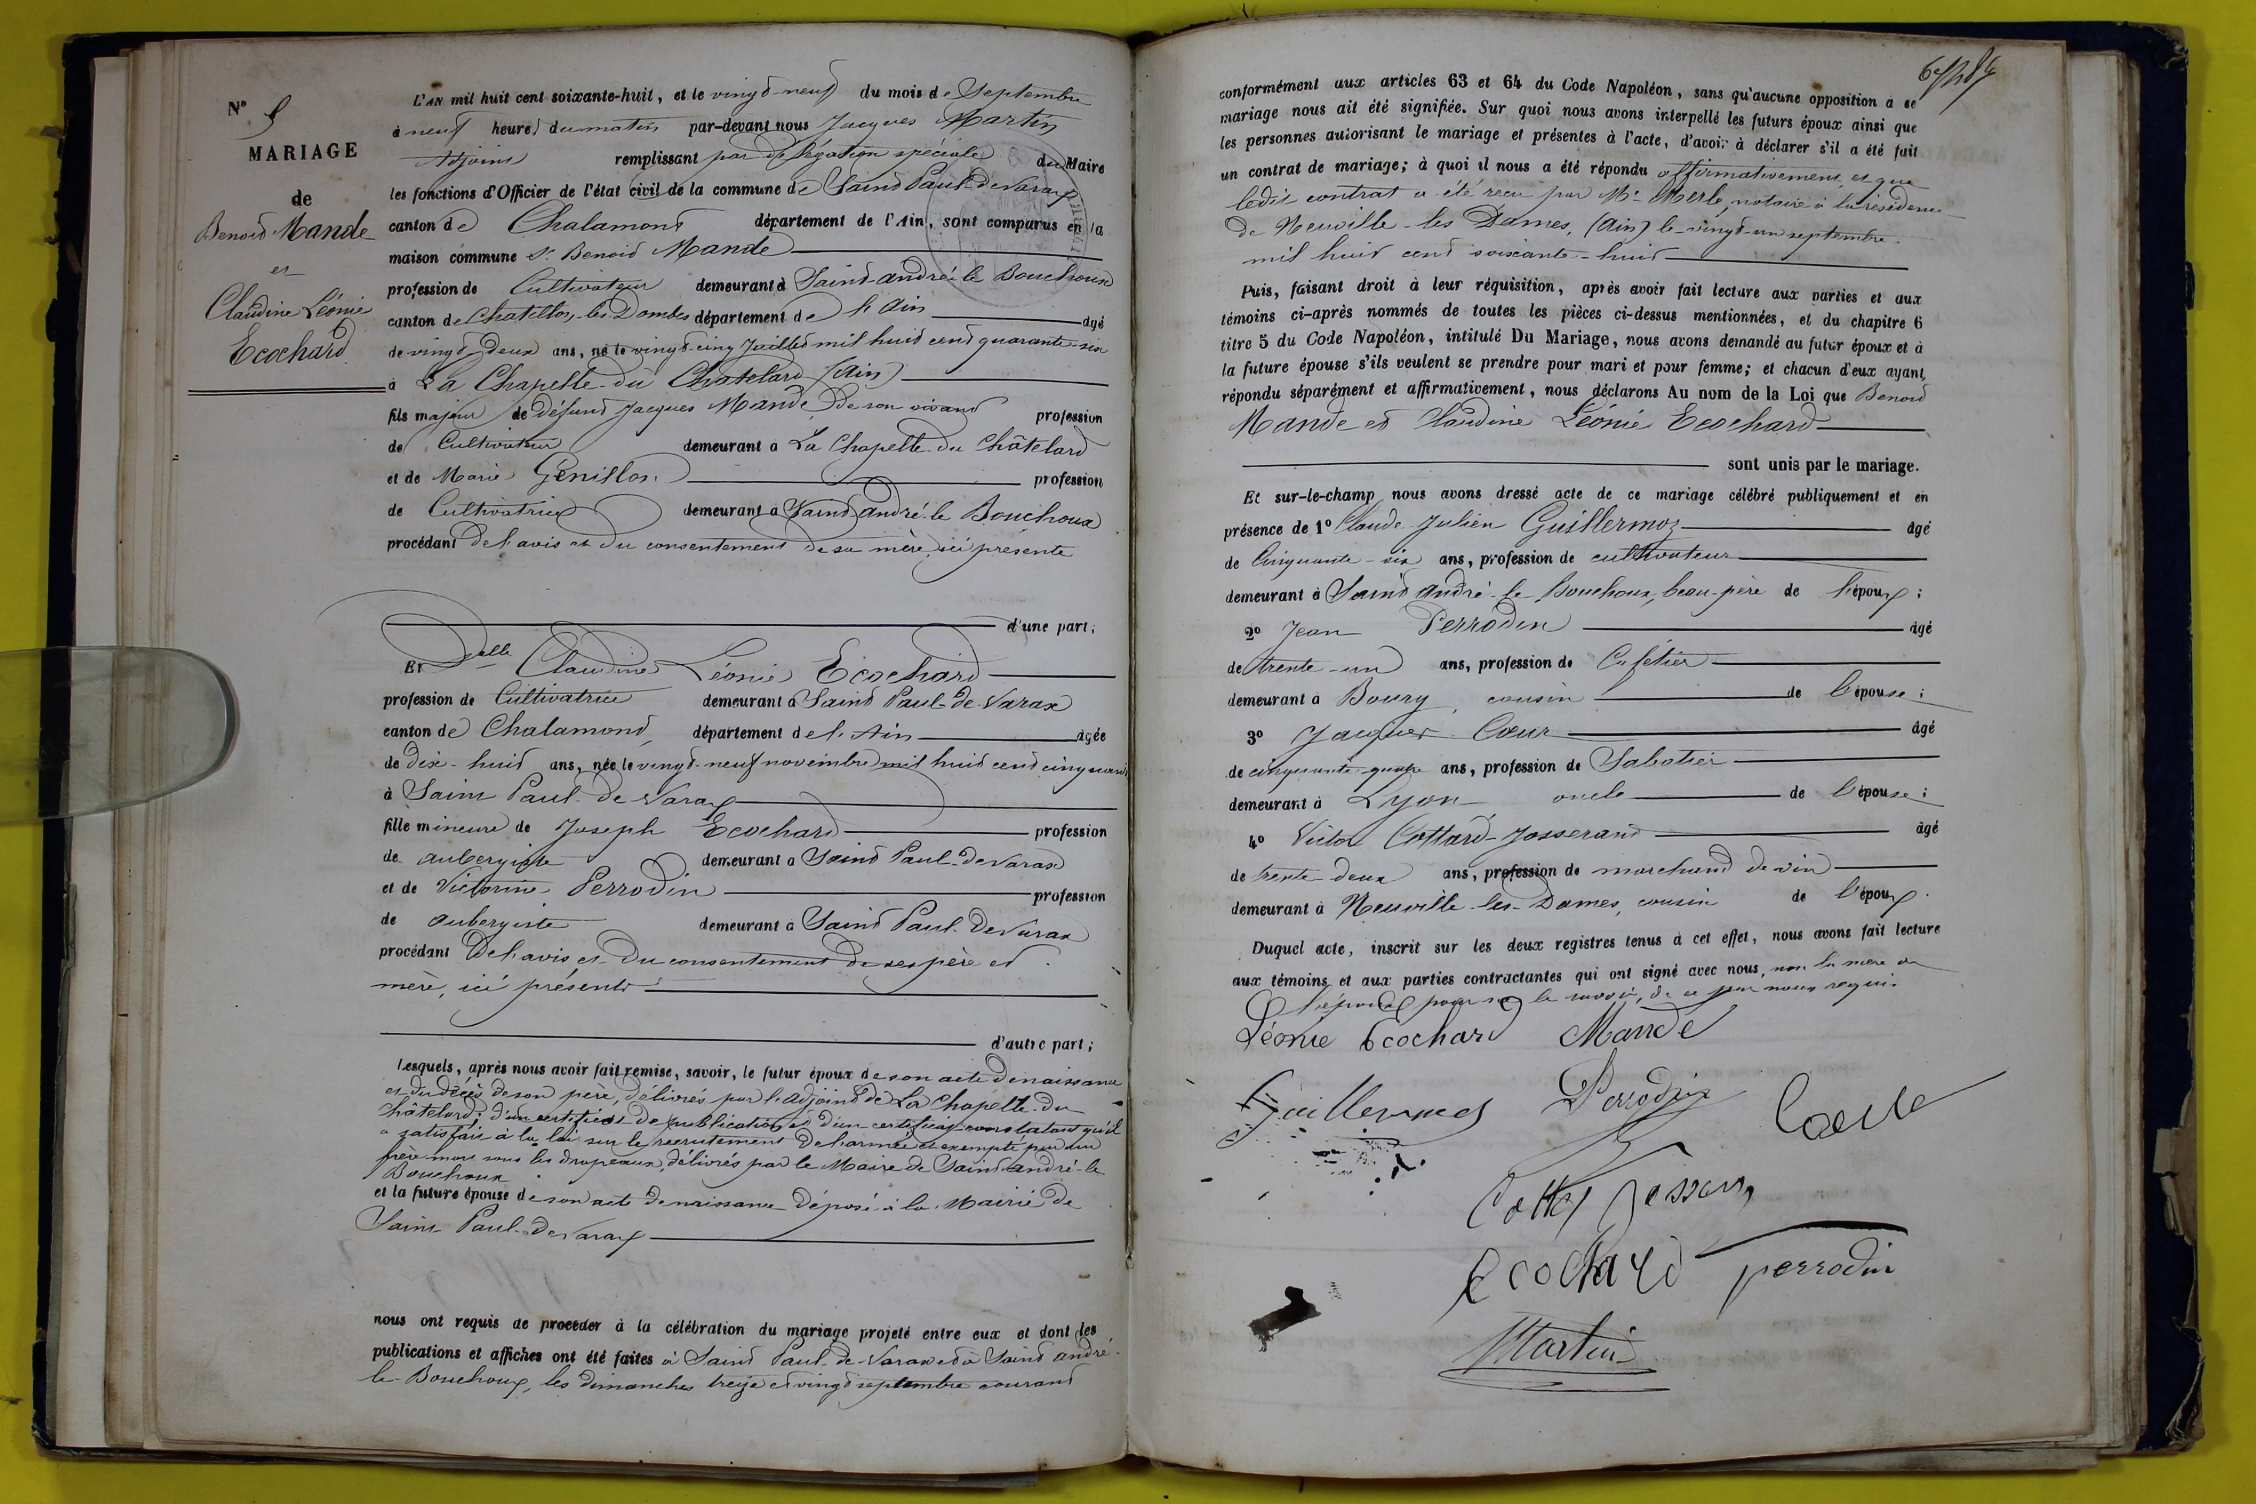 N° 9
MARIAGE
de
Benoit Mande
et
Claudine Léonie
Ecochard
L'AN mil huit cent soixante-huit, et le vingt-neuf du mois de Septembre
à neuf heures du matin par-devant nous Jacques Martin
Adjoint remplissant par délégation spéciale du Maire
les fonctions d'Officier de l'état civil de la commune de Saint Paul-de-Varax
canton de Chalamont département de l'Ain, sont comparus en la
maison commune Sr Benoit Mande
profession de Cultivateur demeurant à Saint-andré-le Bouchoux
canton de Chatillon-les-Dombes département de l'Ain âgé
de vingt deux ans, né le vingt-cinq Juillet mil huit cent quarante-six
à La Chapelle-du Chatelard (Ain)
fils majeur de défunt Jacques Mande De son vivant profession
de Cultivateur demeurant à La Chapelle-du Châtelard
et de Marie Génillon profession
de Cultivatrice demeurant à Saint andré-le Bouchoux
procédant De l'avis et du consentement de sa mère, ici présente
d'une part;
Et Delle Claudine Léonie Ecochard
profession de Cultivatrice demeurant à Saint Paul-de-Varax
canton de Chalamont, département de l'Ain âgée
de dix-huit ans, née le vingt-neuf novembre mil huit cent cinquante
à Saint Paul-de Varax
fille mineure de Joseph Ecochard profession
de aubergiste demeurant à Saint Paul-de Varax
et de Victorine Perrodin profession
de aubergiste demeurant à Saint Paul-de Varax
procédant De l'avis et du consentement de ses père et
mère, ici présents
d'autre part;
Lesquels, après nous avoir fait remise, savoir, le futur époux de son acte de naissance
et du décès de son père, délivrés par l'adjoint de La Chapelle-du
Châtelard; d'un certificat de publication et d'un certificat constatant qu'il
a satisfait à la loi sur le recrutement de l'armée et exempté par un
frère mort sous les drapeaux, délivrés par le Maire de Saint andré-le
Bouchoux
et la future épouse de son acte de naissance déposé à la Mairie de
Saint Paul-de Varax
nous ont requis de procéder à la célébration du mariage projeté entre eux et dont les
publications et affiches ont été faites à Saint Paul-de-Varax et à Saint andré-
le-Bouchoux, les dimanches treize et vingt septembre courant
conformément aux articles 63 et 64 du Code Napoléon, sans qu'aucune opposition à ce
mariage nous ait été signifiée. Sur quoi nous avons interpellé les futurs époux ainsi que
les personnes autorisant le mariage et présentes à l'acte, d'avoir à déclarer s'il a été fait
un contrat de mariage; à quoi il nous a été répondu affirmativement et que
ledit contrat a été reçu par Me Merle, notaire à la résidence
de Neuville-les Dames, (Ain) le vingt-un septembre
mil huit cent soixante-huit
Puis, faisant droit à leur réquisition, après avoir fait lecture aux parties et aux
témoins ci-après nommés de toutes les pièces ci-dessus mentionnées, et du chapitre 6
titre 5 du Code Napoléon, intitulé Du Mariage, nous avons demandé au futur époux et à
la future épouse s'ils veulent se prendre pour mari et pour femme; et chacun d'eux ayant
répondu séparément et affirmativement, nous déclarons Au nom de la Loi que Benoit
Mande et Claudine Léonie Ecochard
sont unis par le mariage.
Et sur-le-champ nous avons dressé acte de ce mariage célébré publiquement et en
présence de 1° Claude-Julien Guillermoz âgé
de Cinquante-six ans, profession de cultivateur
demeurant à Saint andré-le Bouchoux, beau-père de l'époux;
2° Jean Perrodin âgé
de trente-un ans, profession de Cafetier
demeurant à Bourg, cousin de l'épouse;
3° Jacques Cœur âgé
de cinquante-quatre ans, profession de Sabotier
demeurant à Lyon oncle de l'épouse;
4° Victor Cottard-Josserand âgé
de trente-deux ans, profession de marchand de vin
demeurant à Neuville-les-Dames, cousin de l'époux.
Duquel acte, inscrit sur les deux registres tenus à cet effet, nous avons fait lecture
aux témoins et aux parties contractantes qui ont signé avec nous, non la mère de
l'époux pour ne le savoir, de ce par nous requis.
Léonie Ecochard Mande
Guillermoz Perrodin Cœur
Cottard Josseran
Ecochard perrodin
Martin